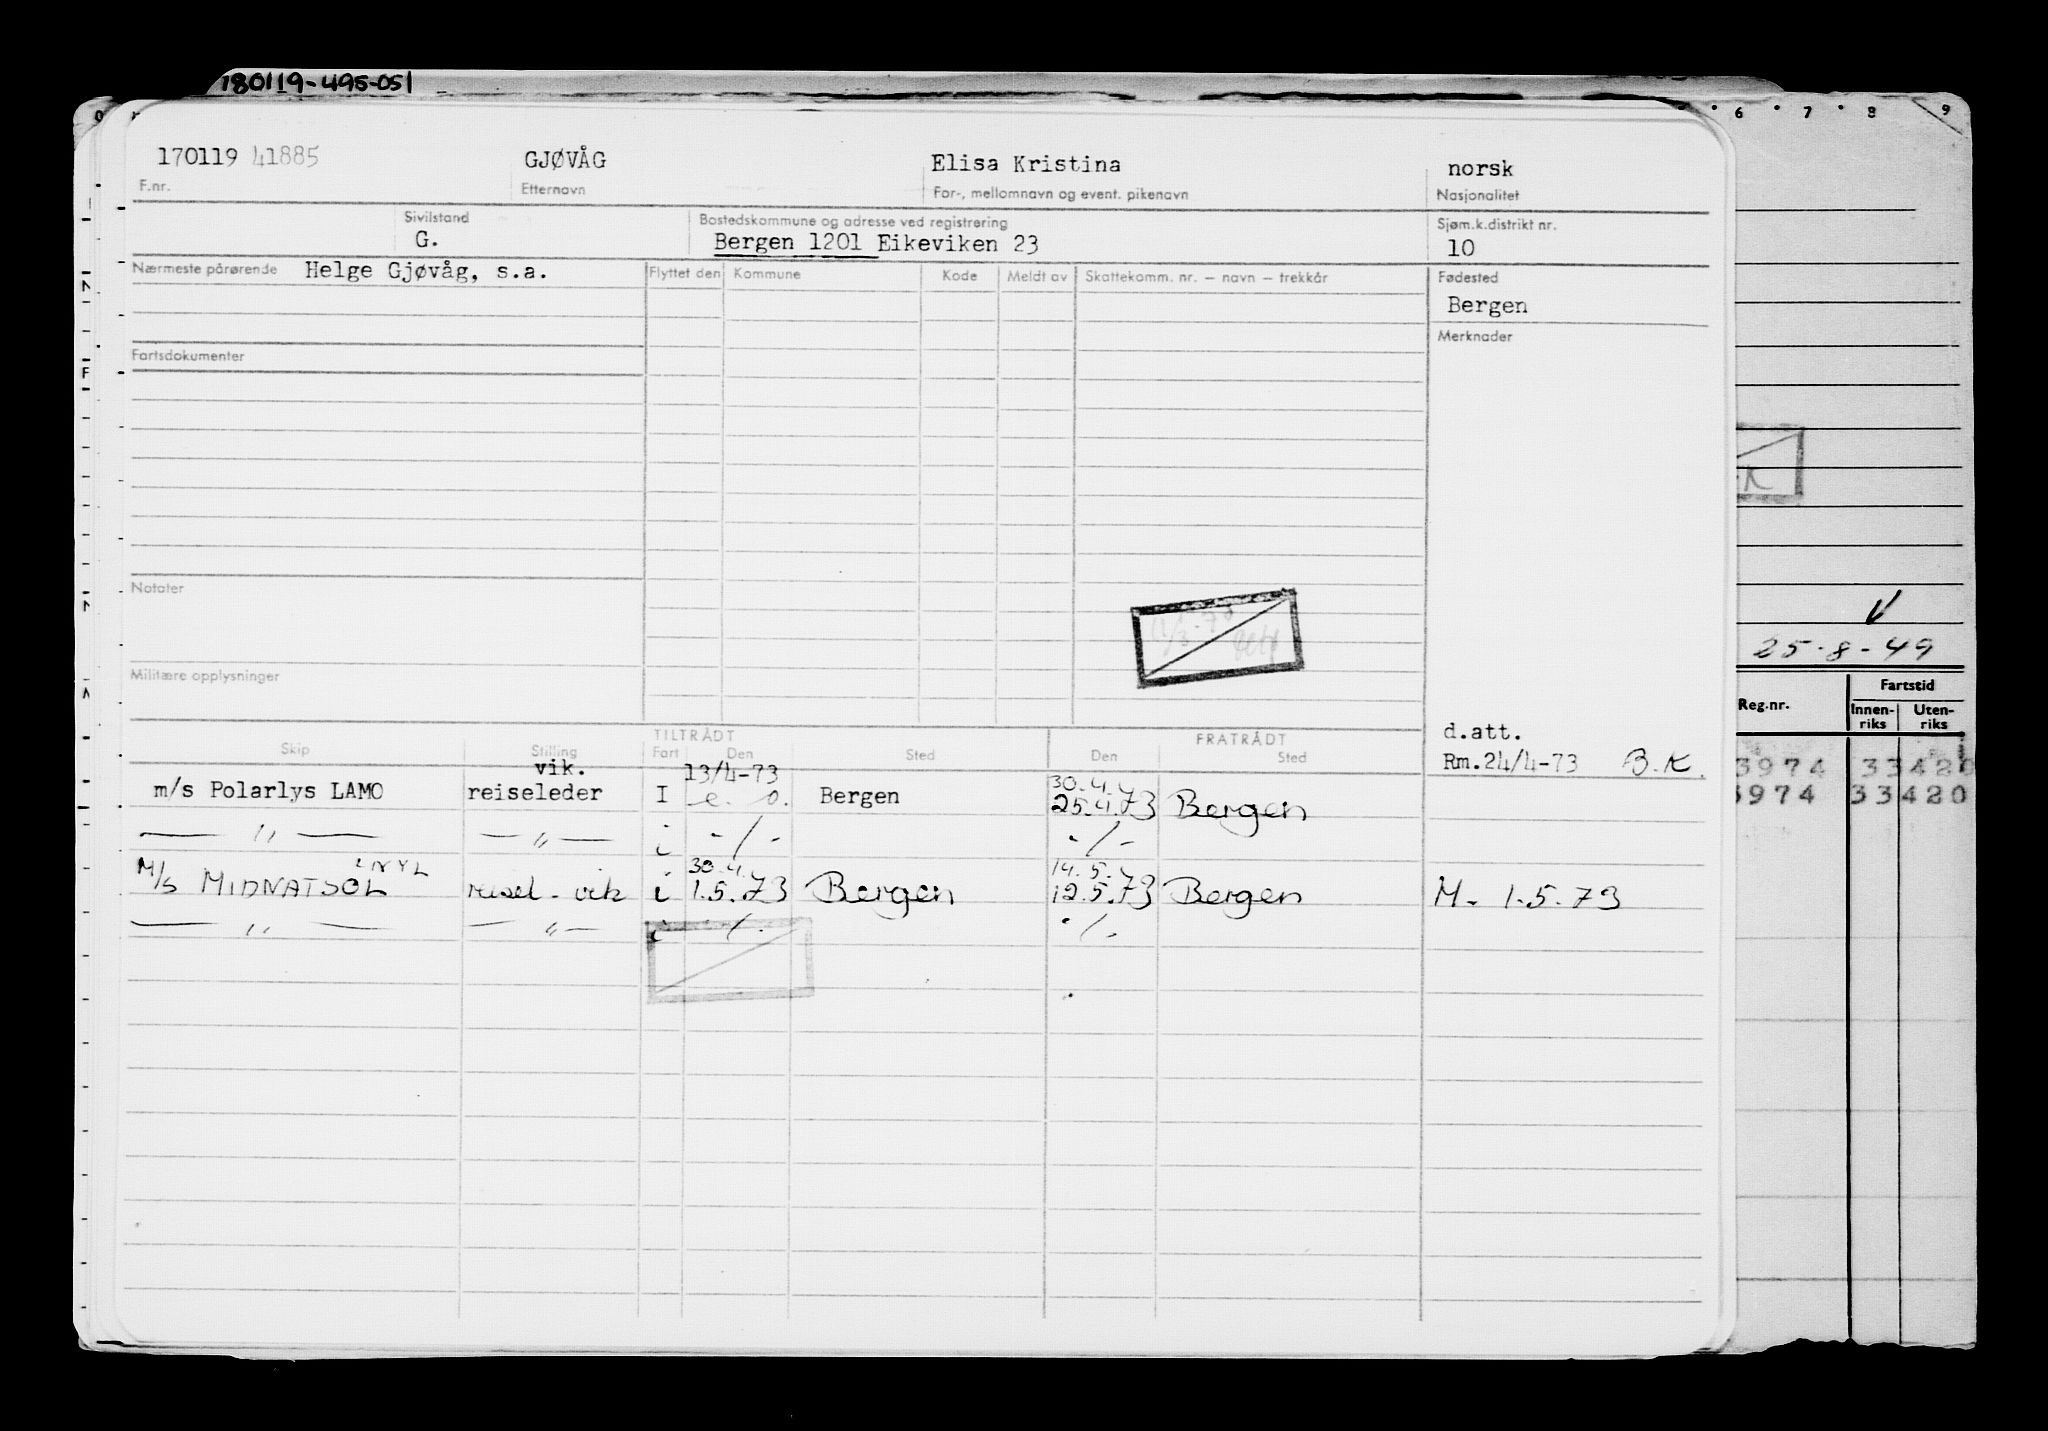 180119-495-051
6 7 8 9
170119 41885 GJØVÅG Elisa Kristina norsk
F.nr. Etternavn For-, mellomnavn og event. pikenavn Nasjonalitet
Sivilstand Bostedskommune og adresse ved registrering Sjøm.k.distrikt nr.
G. Bergen 1201 Eikeviken 23 10
Nærmeste pårørende Helge Gjøvåg, s.a. Flyttet den Kommune Kode Meldt av Skattekomm. nr. — navn — trekkår Fødested
Bergen
Merknader
Fartsdokumenter
Notater
Militære opplysninger
25-8-49
Reg.nr. Fartstid
Innen-riks Uten-riks
TILTRÅDT FRATRÅDT d.att.
Skip Stilling Fart Den Sted Den Sted Rm.24/4-73 B.K.
3974 33420
vik. 13/4-73 30.4.
m/s Polarlys LAMO reiseleder I e. o. Bergen 25.4.73 Bergen
3974 33420
— " — — " — i -/- -/-
LNYL 30.4. 14.5.
M/s MIDNATSOL reisel-vik i 1.5.73 Bergen 12.5.73 Bergen M- 1.5.73
— " — — " — i -/- -/-